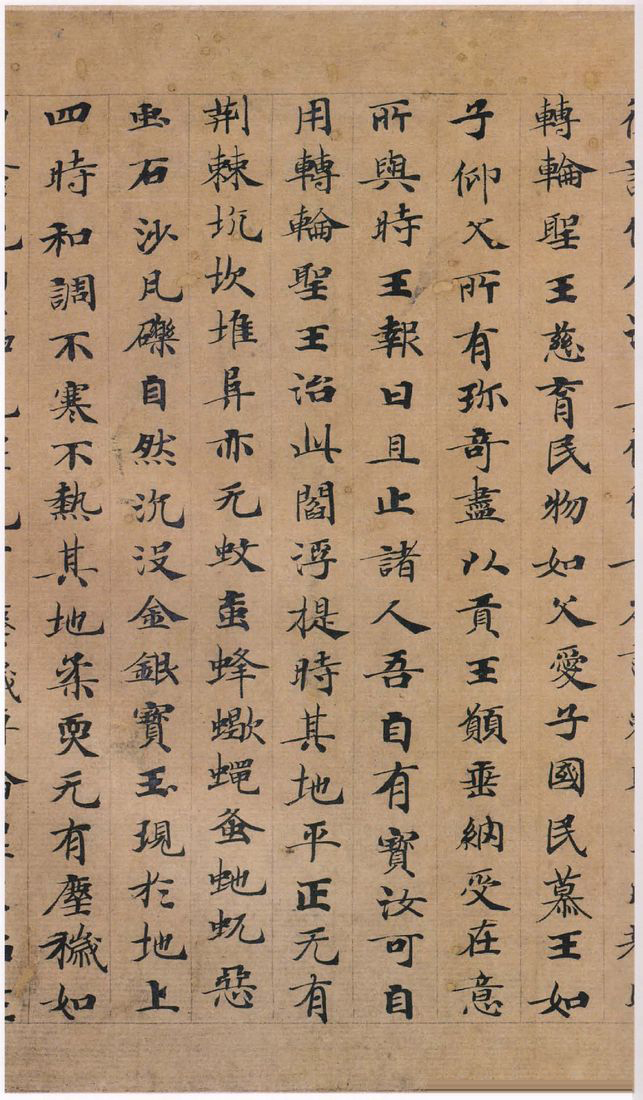 轉輪聖王慈育民物如父愛子國民慕王如
子仰父所有珎奇盡以貢王願垂納受在意
所與時王報曰且止諸人吾自有寶汝可自
用轉輪聖王治此閻浮提時其地平正无有
荆棘坑坎堆阜亦无蚊虻蜂蠍蠅蚤虵蚖惡
虫石沙瓦礫自然沉没金銀寶玉現於地上
四時和調不寒不熱其地柔耎无有塵穢如